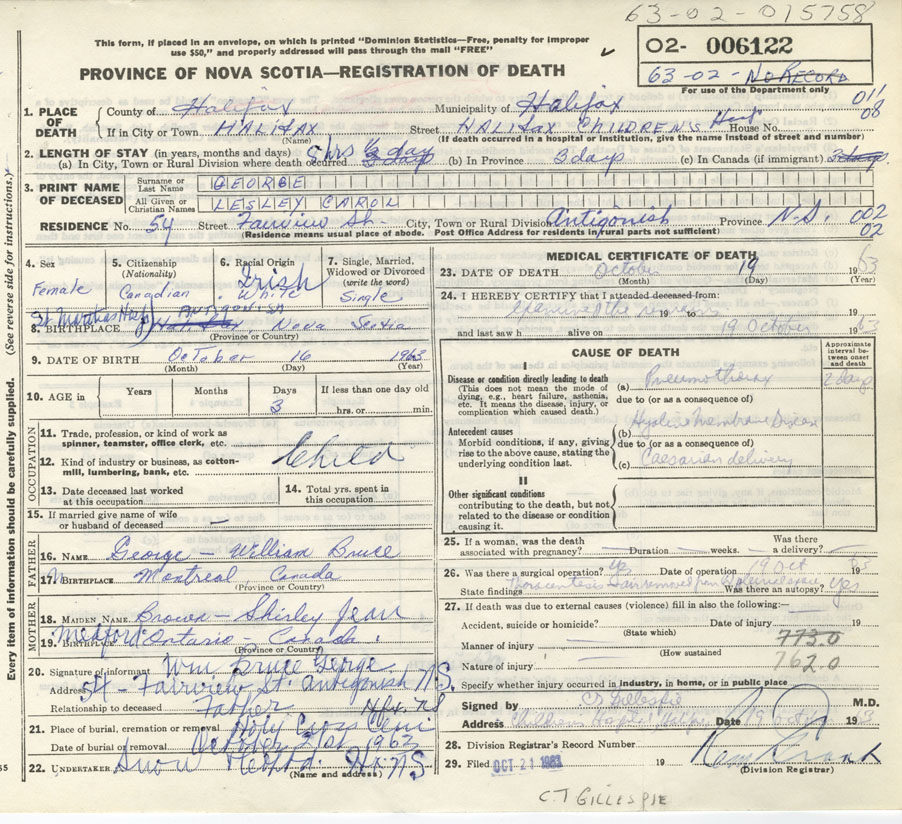 63-02-015758
This form, if placed in an envelope, on which is printed "Dominion Statistics—Free, penalty for improper
use $50," and properly addressed will pass through the mail "FREE"
02- 006122
63-02 - No RECORD
For use of the Department only
PROVINCE OF NOVA SCOTIA—REGISTRATION OF DEATH
1. PLACE OF DEATH
County of Halifax Municipality of Halifax 011
08
If in City or Town HALIFAX Street HALIFAX CHILDRENS Hosp House No.
(Name) (If death occurred in a hospital or institution, give the name instead of street and number)
2. LENGTH OF STAY (in years, months and days)
(a) In City, Town or Rural Division where death occurred 3 day (b) In Province 3 days (c) In Canada (if immigrant) 3 days
3. PRINT NAME OF DECEASED
Surname or Last Name GEORGE
All Given or Christian Names LESLEY CAROL
RESIDENCE No. 54 Street Fairview St. City, Town or Rural Division Antigonish Province N.S. 002
02
(Residence means usual place of abode. Post Office Address for residents in rural parts not sufficient)
4. Sex
Female
5. Citizenship
(Nationality)
Canadian
6. Racial Origin
Irish
White
7. Single, Married,
Widowed or Divorced
(write the word)
Single
St Marthas Hosp ANTIGONISH
8. BIRTHPLACE Halifax, Nova Scotia
(Province or Country)
9. DATE OF BIRTH October 16 1963
(Month) (Day) (Year)
10. AGE in Years Months Days If less than one day old
3 hrs. or min.
OCCUPATION
11. Trade, profession, or kind of work as
spinner, teamster, office clerk, etc.
12. Kind of industry or business, as cotton-
mill, lumbering, bank, etc.
Child
13. Date deceased last worked
at this occupation
14. Total yrs. spent in
this occupation
15. If married give name of wife
or husband of deceased —
FATHER
16. NAME George - William Bruce
17. BIRTHPLACE Montreal Canada
(Province or Country)
MOTHER
18. MAIDEN NAME Brown - Shirley Jean
19. BIRTHPLACE Medford Ontario - Canada
(Province or Country)
20. Signature of informant Wm Bruce George
Address 54 - Fairview St. Antigonish N.S.
Relationship to deceased Father
Hfx. NS
21. Place of burial, cremation or removal Holy Cross Cem
Date of burial or removal October 21st 1963
22. UNDERTAKER Snow Hfx NS
(Name and address)
MEDICAL CERTIFICATE OF DEATH
23. DATE OF DEATH October 19 1963
(Month) (Day) (Year)
24. I HEREBY CERTIFY that I attended deceased from:
Examined the remains 19 to 19
and last saw h alive on 19 October 1963
CAUSE OF DEATH
Approximate
interval be-
tween onset
and death
I
Disease or condition directly leading to death
(This does not mean the mode of
dying, e.g., heart failure, asthenia,
etc. It means the disease, injury, or
complication which caused death.)
(a) Pneumothorax 2 days
due to (or as a consequence of)
Antecedent causes
Morbid conditions, if any, giving
rise to the above cause, stating the
underlying condition last.
(b) Hyaline Membrane Disease
due to (or as a consequence of)
(c) Caesarian delivery
II
Other significant conditions
contributing to the death, but not
related to the disease or condition
causing it.
25. If a woman, was the death
associated with pregnancy? — Duration — weeks. Was there
a delivery? —
26. Was there a surgical operation? Yes Date of operation 19 Oct 1963
State findings Thoracentesis - air removed from pleural space Was there an autopsy? yes
27. If death was due to external causes (violence) fill in also the following:—
Accident, suicide or homicide? Date of injury 19
(State which)
773.0
Manner of injury
(How sustained)
762.0
Nature of injury
Specify whether injury occurred in industry, in home, or in public place
Signed by CT Gillespie M.D.
Address Children Hospital Halifax Date 19 Oct 1963
28. Division Registrar's Record Number
29. Filed OCT 21 1963 19
(Division Registrar)
C.T GILLESPIE
Every item of information should be carefully supplied. (See reverse side for instructions.)